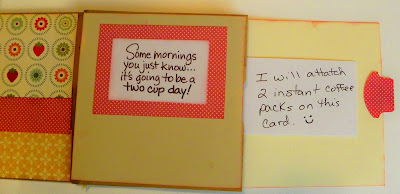 Some mornings
you just know...
it's going to be a
two cup day!
I will attatch
2 instant coffee
packs on this
card. :)